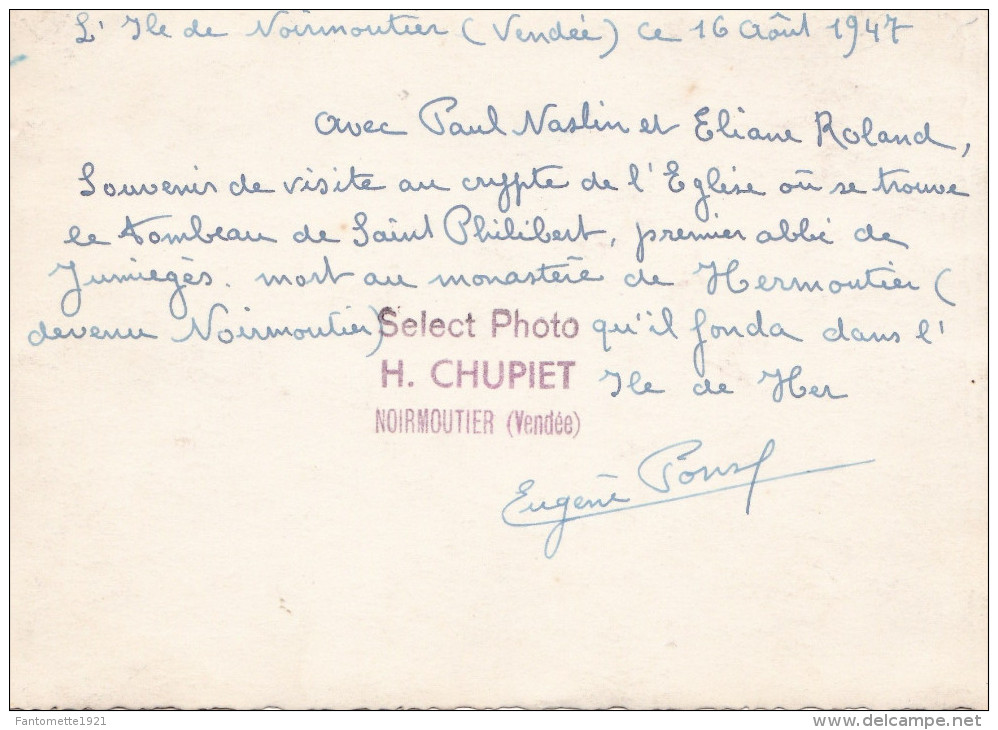 L' Ile de Noirmoutier (Vendée) ce 16 Août 1947
avec Paul Naslin et Eliane Roland,
Souvenir de visite au crypte de l'Eglise où se trouve
le tombeau de Saint Philibert, premier abbé de
Jumiegès. mort au monastère de Hermoutier (
devenu Noirmoutier) qu'il fonda dans l'
Ile de Her
Select Photo
H. CHUPIET
NOIRMOUTIER (Vendée)
Eugène Pons
Fantomette1921
delcampe.net